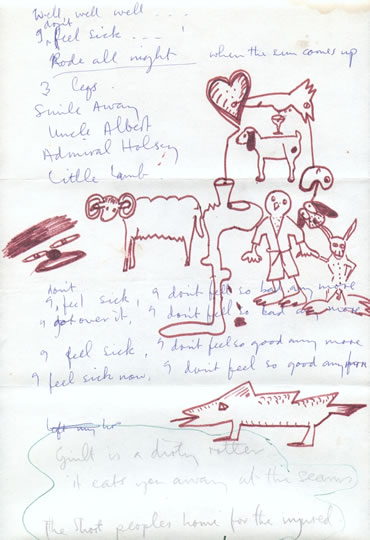 Well, well well ....
I don't feel sick - - -
Rode all night when the sun comes up
3 legs.
Smile Away
Uncle Albert
Admiral Halsey
Little Lamb.
I don't feel sick, I don't feel so bad any more
I got over it, I don't feel so bad any more
I feel sick, I don't feel so good any more
I feel sick now, I don't feel so good any more
Guilt is a dirty rotter
it eats you away at the seams
The short peoples home for the injured.